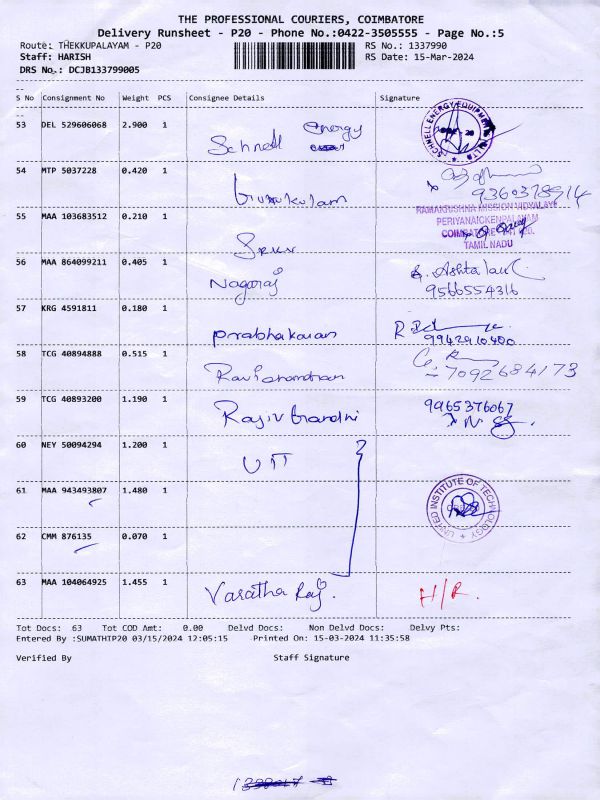 THE PROFESSIONAL COURIERS, COIMBATORE
Delivery Runsheet - P20 - Phone No.:0422-3505555 - Page No.:5
Route: THEKKUPALAYAM - P20 RS No.: 1337990
Staff: HARISH RS Date: 15-Mar-2024
DRS No.: DCJB133799005
S No Consignment No Weight PCS Consignee Details Signature
53 DEL 529606068 2.900 1 Schnell energy SCHNELL ENERGY EQUIPMENT
54 MTP 5037228 0.420 1 Gurukulam 9360378914
RAMAKRISHNA MISSION VIDYALAYA
PERIYANAICKENPALAYAM
55 MAA 103683512 0.210 1 SRKV COIMBATORE
TAMIL NADU
56 MAA 864099211 0.405 1 Nagaraj Ashtalax
9566554316
57 KRG 4591811 0.180 1 Prabhakaran
9942910400
58 TCG 40894888 0.515 1 Ravichandran 7092684173
59 TCG 40893200 1.190 1 Rajiv Gandhi 9965376067
60 NEY 50094294 1.200 1 UIT
61 MAA 943493807 1.480 1 UNITED INSTITUTE OF TECHNOLOGY
62 CMM 876135 0.070 1
63 MAA 104064925 1.455 1 Varatha Raj. H/R.
Tot Docs: 63 Tot COD Amt: 0.00 Delvd Docs: Non Delvd Docs: Delvy Pts:
Entered By :SUMATHIP20 03/15/2024 12:05:15 Printed On: 15-03-2024 11:35:58
Verified By Staff Signature